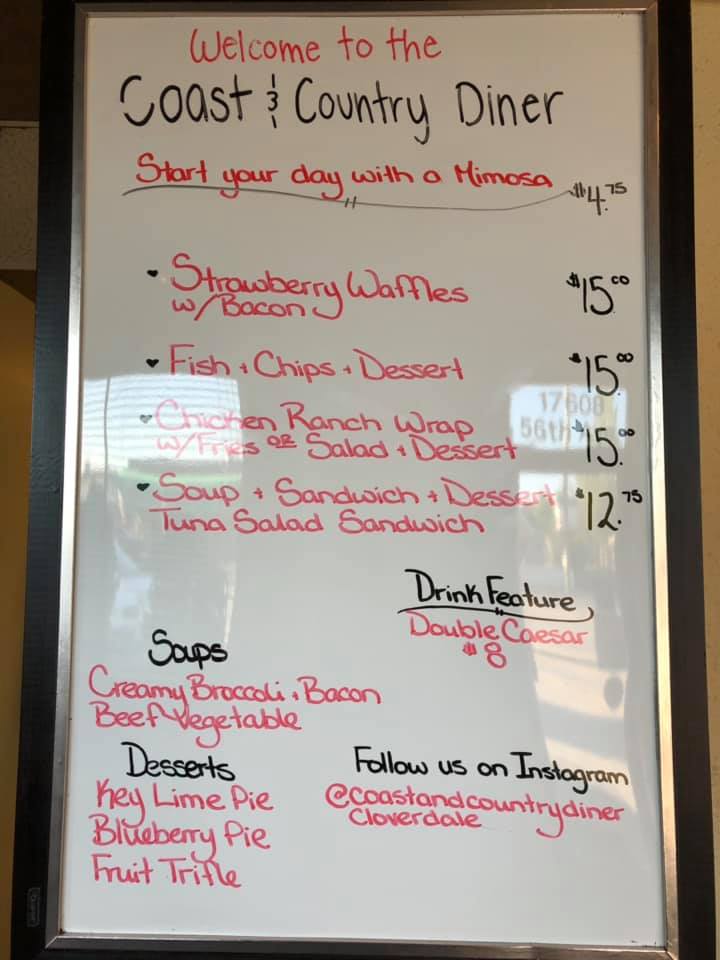 Welcome to the
Coast & Country Diner
Start your day with a Mimosa $4.75
Strawberry Waffles $15.00
w/Bacon
Fish + Chips + Dessert $15.00
17608
Chicken Ranch Wrap
56th $15.00
w/Fries OR Salad + Dessert
Soup + Sandwich + Dessert $12.75
Tuna Salad Sandwich
Drink Feature
Double Caesar
$8
Soups
Creamy Broccoli + Bacon
Beef Vegetable
Desserts
Key Lime Pie
Blueberry Pie
Fruit Trifle
Follow us on Instagram
@coastandcountrydiner
Cloverdale